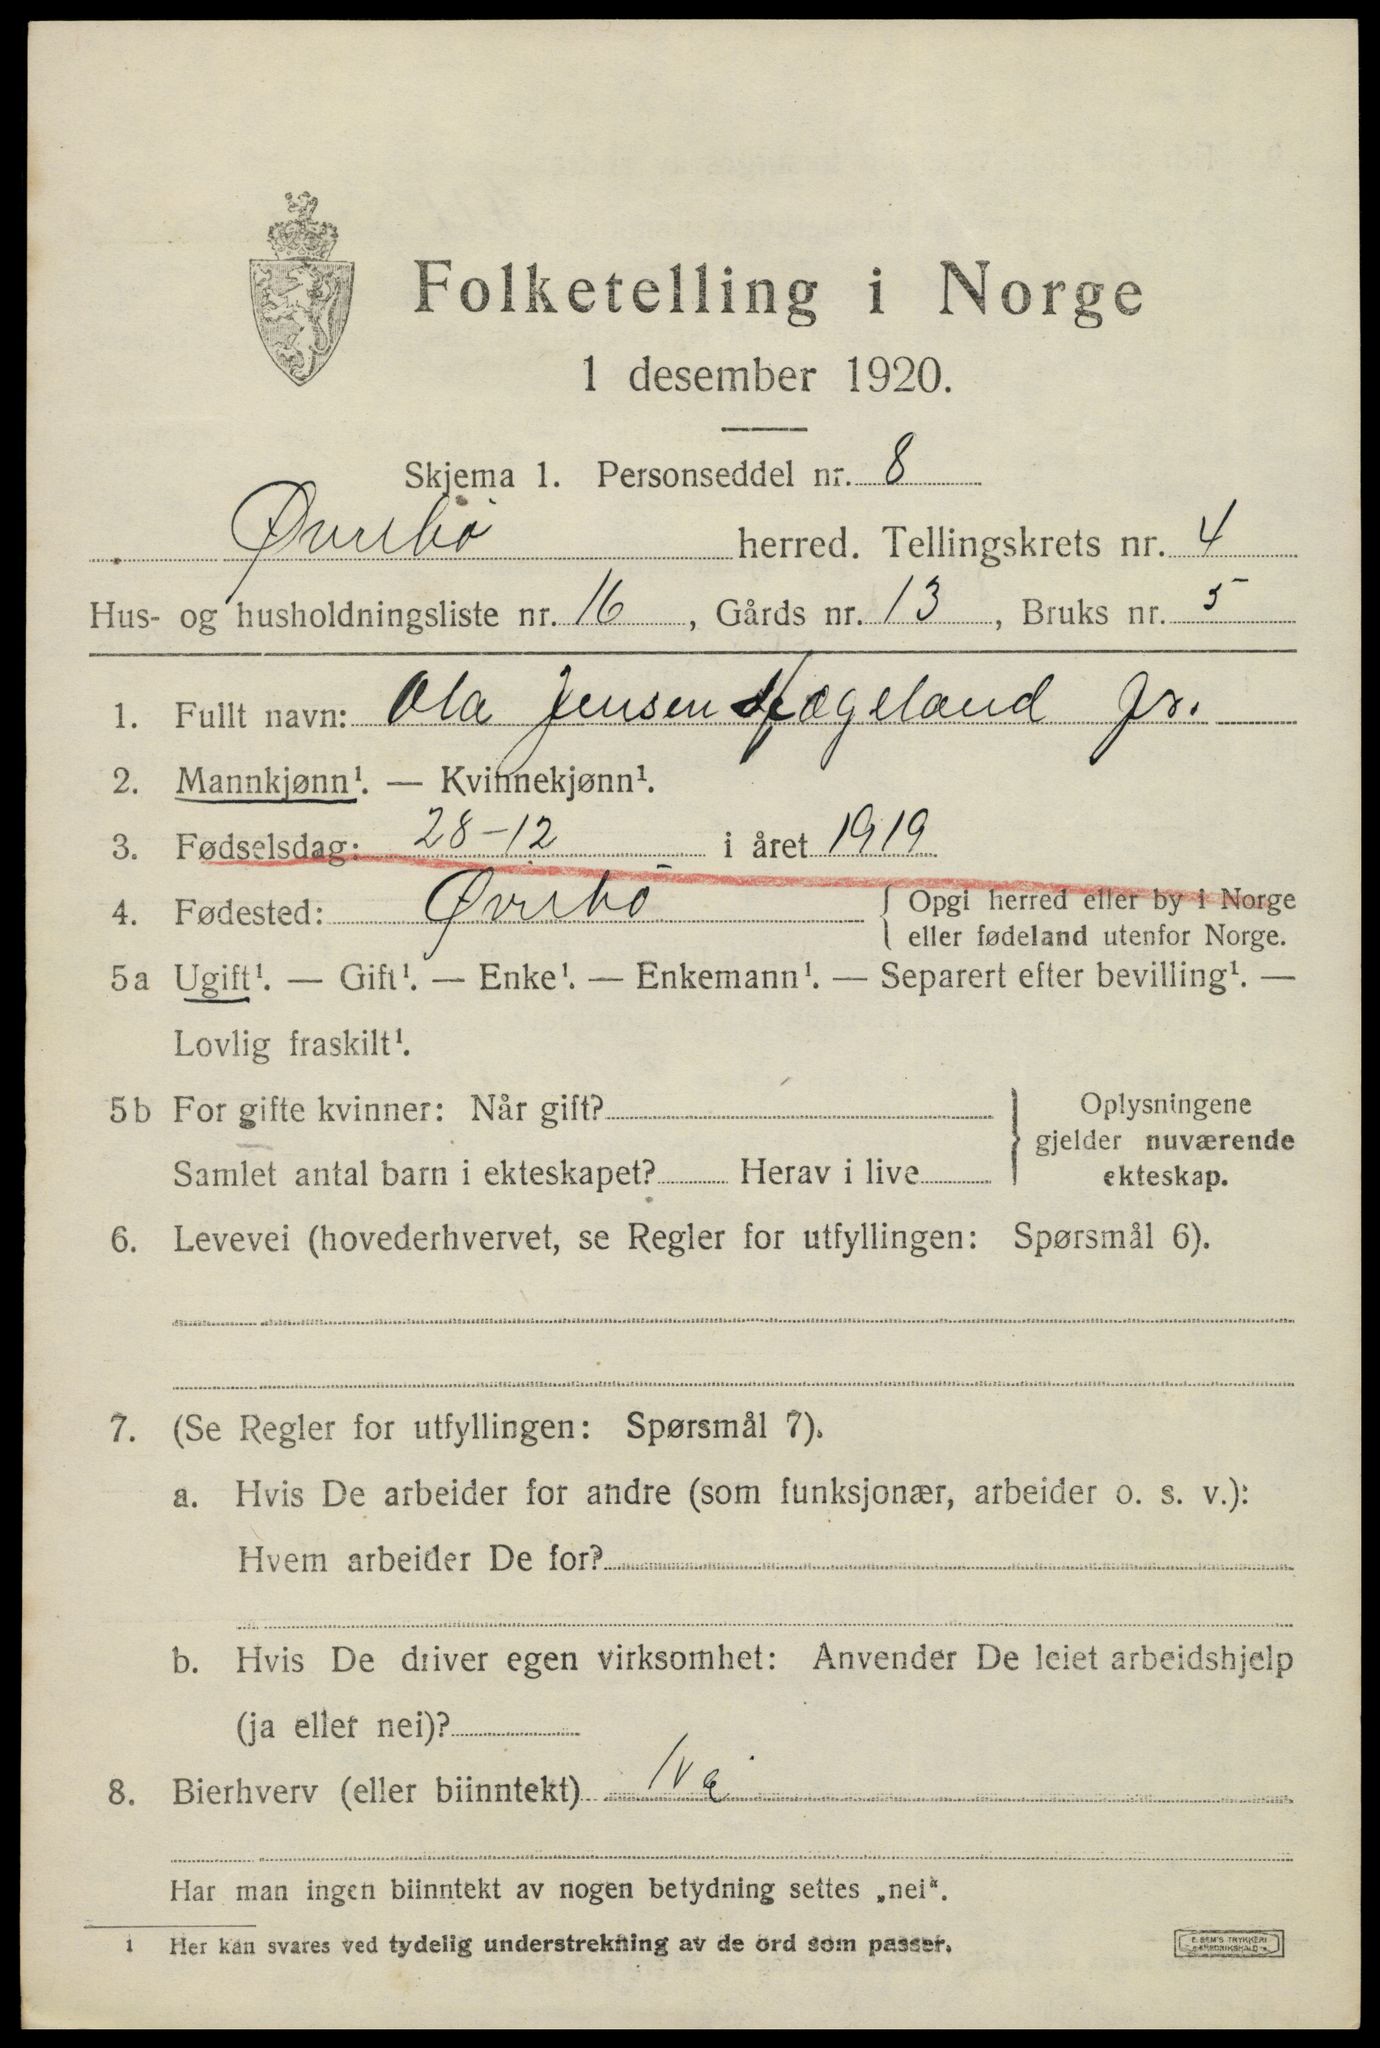 Folketelling i Norge
1 desember 1920.
Skjema 1. Personseddel nr. 8
Øvrebö herred. Tellingskrets nr. 4
Hus- og husholdningsliste nr. 16, Gårds nr. 13, Bruks nr. 5
1. Fullt navn: Ola Jensen Hægeland Jr.
2. Mannkjønn¹. — Kvinnekjønn¹.
3. Fødselsdag: 28-12 i året 1919
4. Fødested: Øvrebö { Opgi herred eller by i Norge
eller fødeland utenfor Norge.
5a Ugift¹. — Gift¹. — Enke¹. — Enkemann¹. — Separert efter bevilling¹. —
Lovlig fraskilt¹.
5b For gifte kvinner: Når gift? } Oplysningene
gjelder nuværende
Samlet antal barn i ekteskapet? Herav i live ekteskap.
6. Levevei (hovederhvervet, se Regler for utfyllingen: Spørsmål 6).
7. (Se Regler for utfyllingen: Spørsmål 7).
a. Hvis De arbeider for andre (som funksjonær, arbeider o. s. v.):
Hvem arbeider De for?
b. Hvis De driver egen virksomhet: Anvender De leiet arbeidshjelp
(ja eller nei)?
8. Bierhverv (eller biinntekt) Nei
Har man ingen biinntekt av nogen betydning settes „nei“.
1 Her kan svares ved tydelig understrekning av de ord som passer.
E. SEM'S TRYKKERI
FREDRIKSHALD